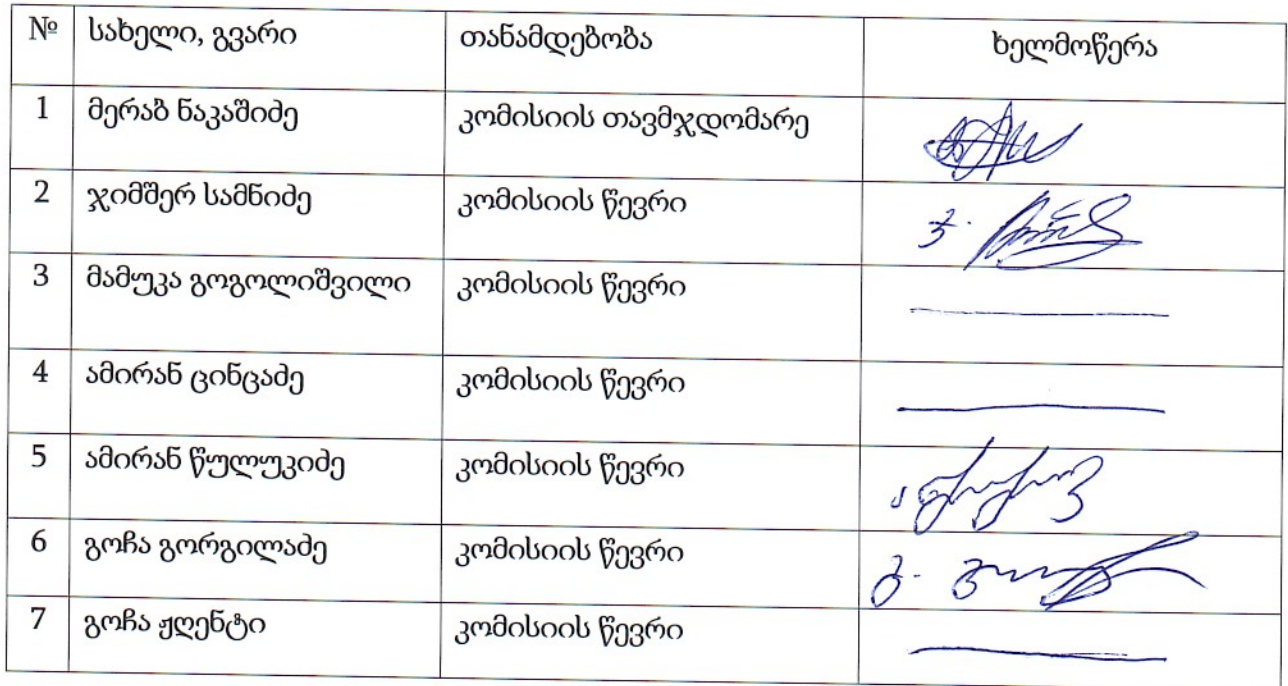 № სახელი, გვარი თანამდებობა ხელმოწერა
1 მერაბ ნაკაშიძე კომისიის თავმჯდომარე
2 ჯიმშერ სამნიძე კომისიის წევრი
3 მამუკა გოგოლიშვილი კომისიის წევრი
4 ამირან ცინცაძე კომისიის წევრი
5 ამირან წულუკიძე კომისიის წევრი
6 გოჩა გორგილაძე კომისიის წევრი
7 გოჩა ჟღენტი კომისიის წევრი